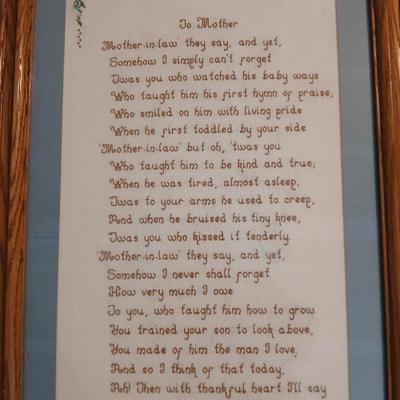 To Mother
'Mother-in-law' they say, and yet,
Somehow I simply can't forget
'Twas you who watched his baby ways
Who taught him his first hymn of praise;
Who smiled on him with living pride
When he first toddled by your side.
'Mother-in-law' but oh, 'twas you
Who taught him to be kind and true;
When he was tired, almost asleep,
'Twas to your arms he used to creep,
And when he bruised his tiny knee,
'Twas you who kissed it tenderly.
'Mother-in-law' they say, and yet,
Somehow I never shall forget
How very much I owe
To you, who taught him how to grow.
You trained your son to look above,
You made of him the man I love;
And so I think of that today,
Ah! Then with thankful heart I'll say